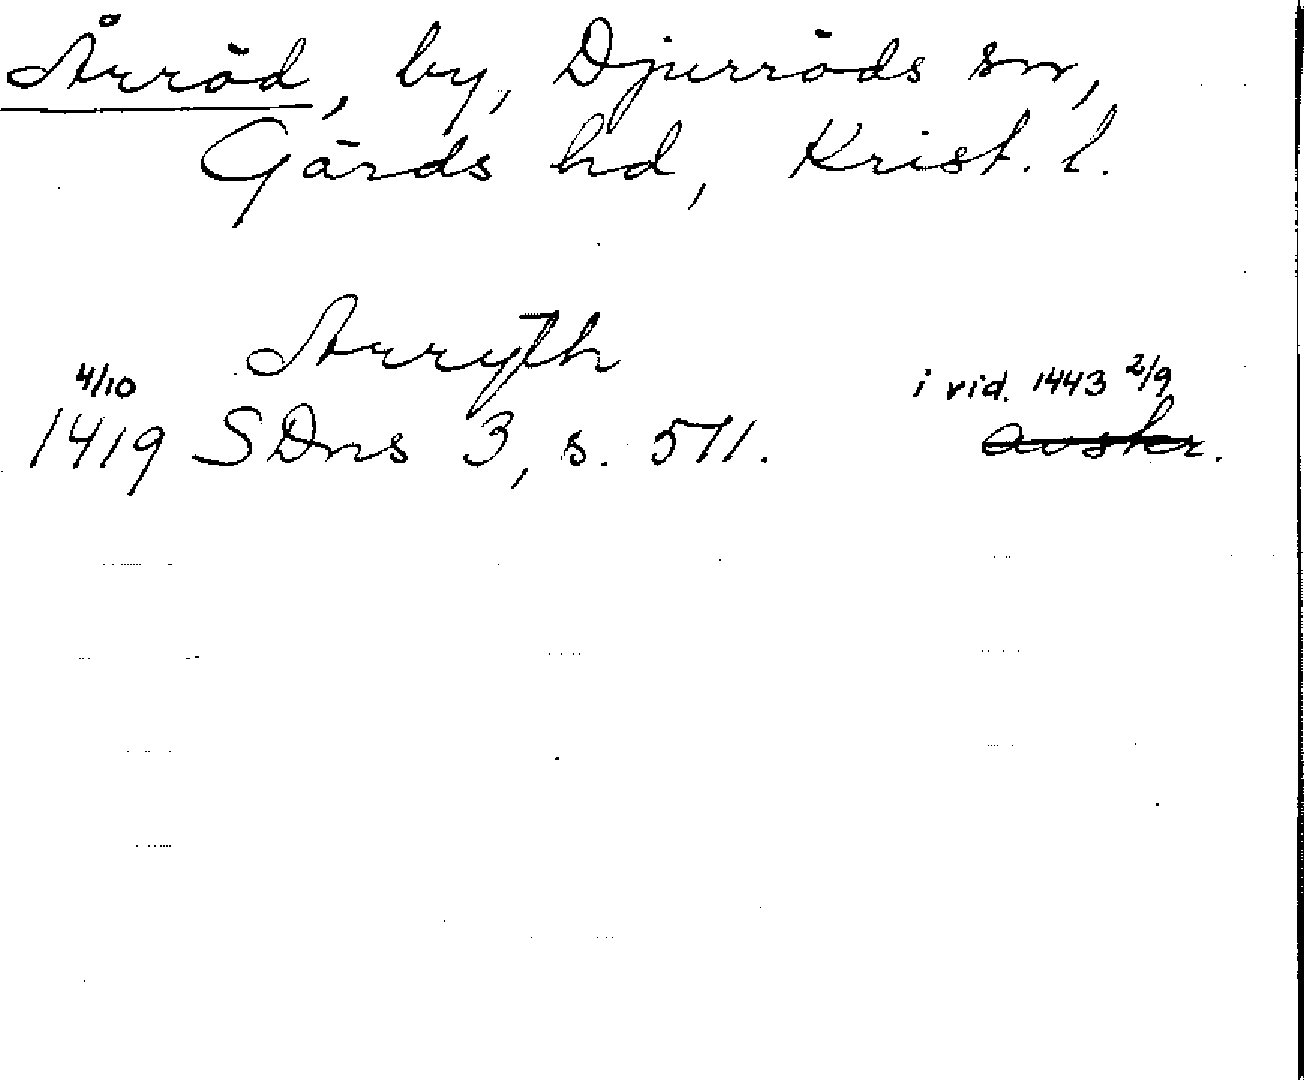 Årröd, by, Djurröds sn,
Gärds hd, Krist. l.
Arryth
4/10 i vid. 1443 2/9
1419 SDns 3, s. 511. avskr.